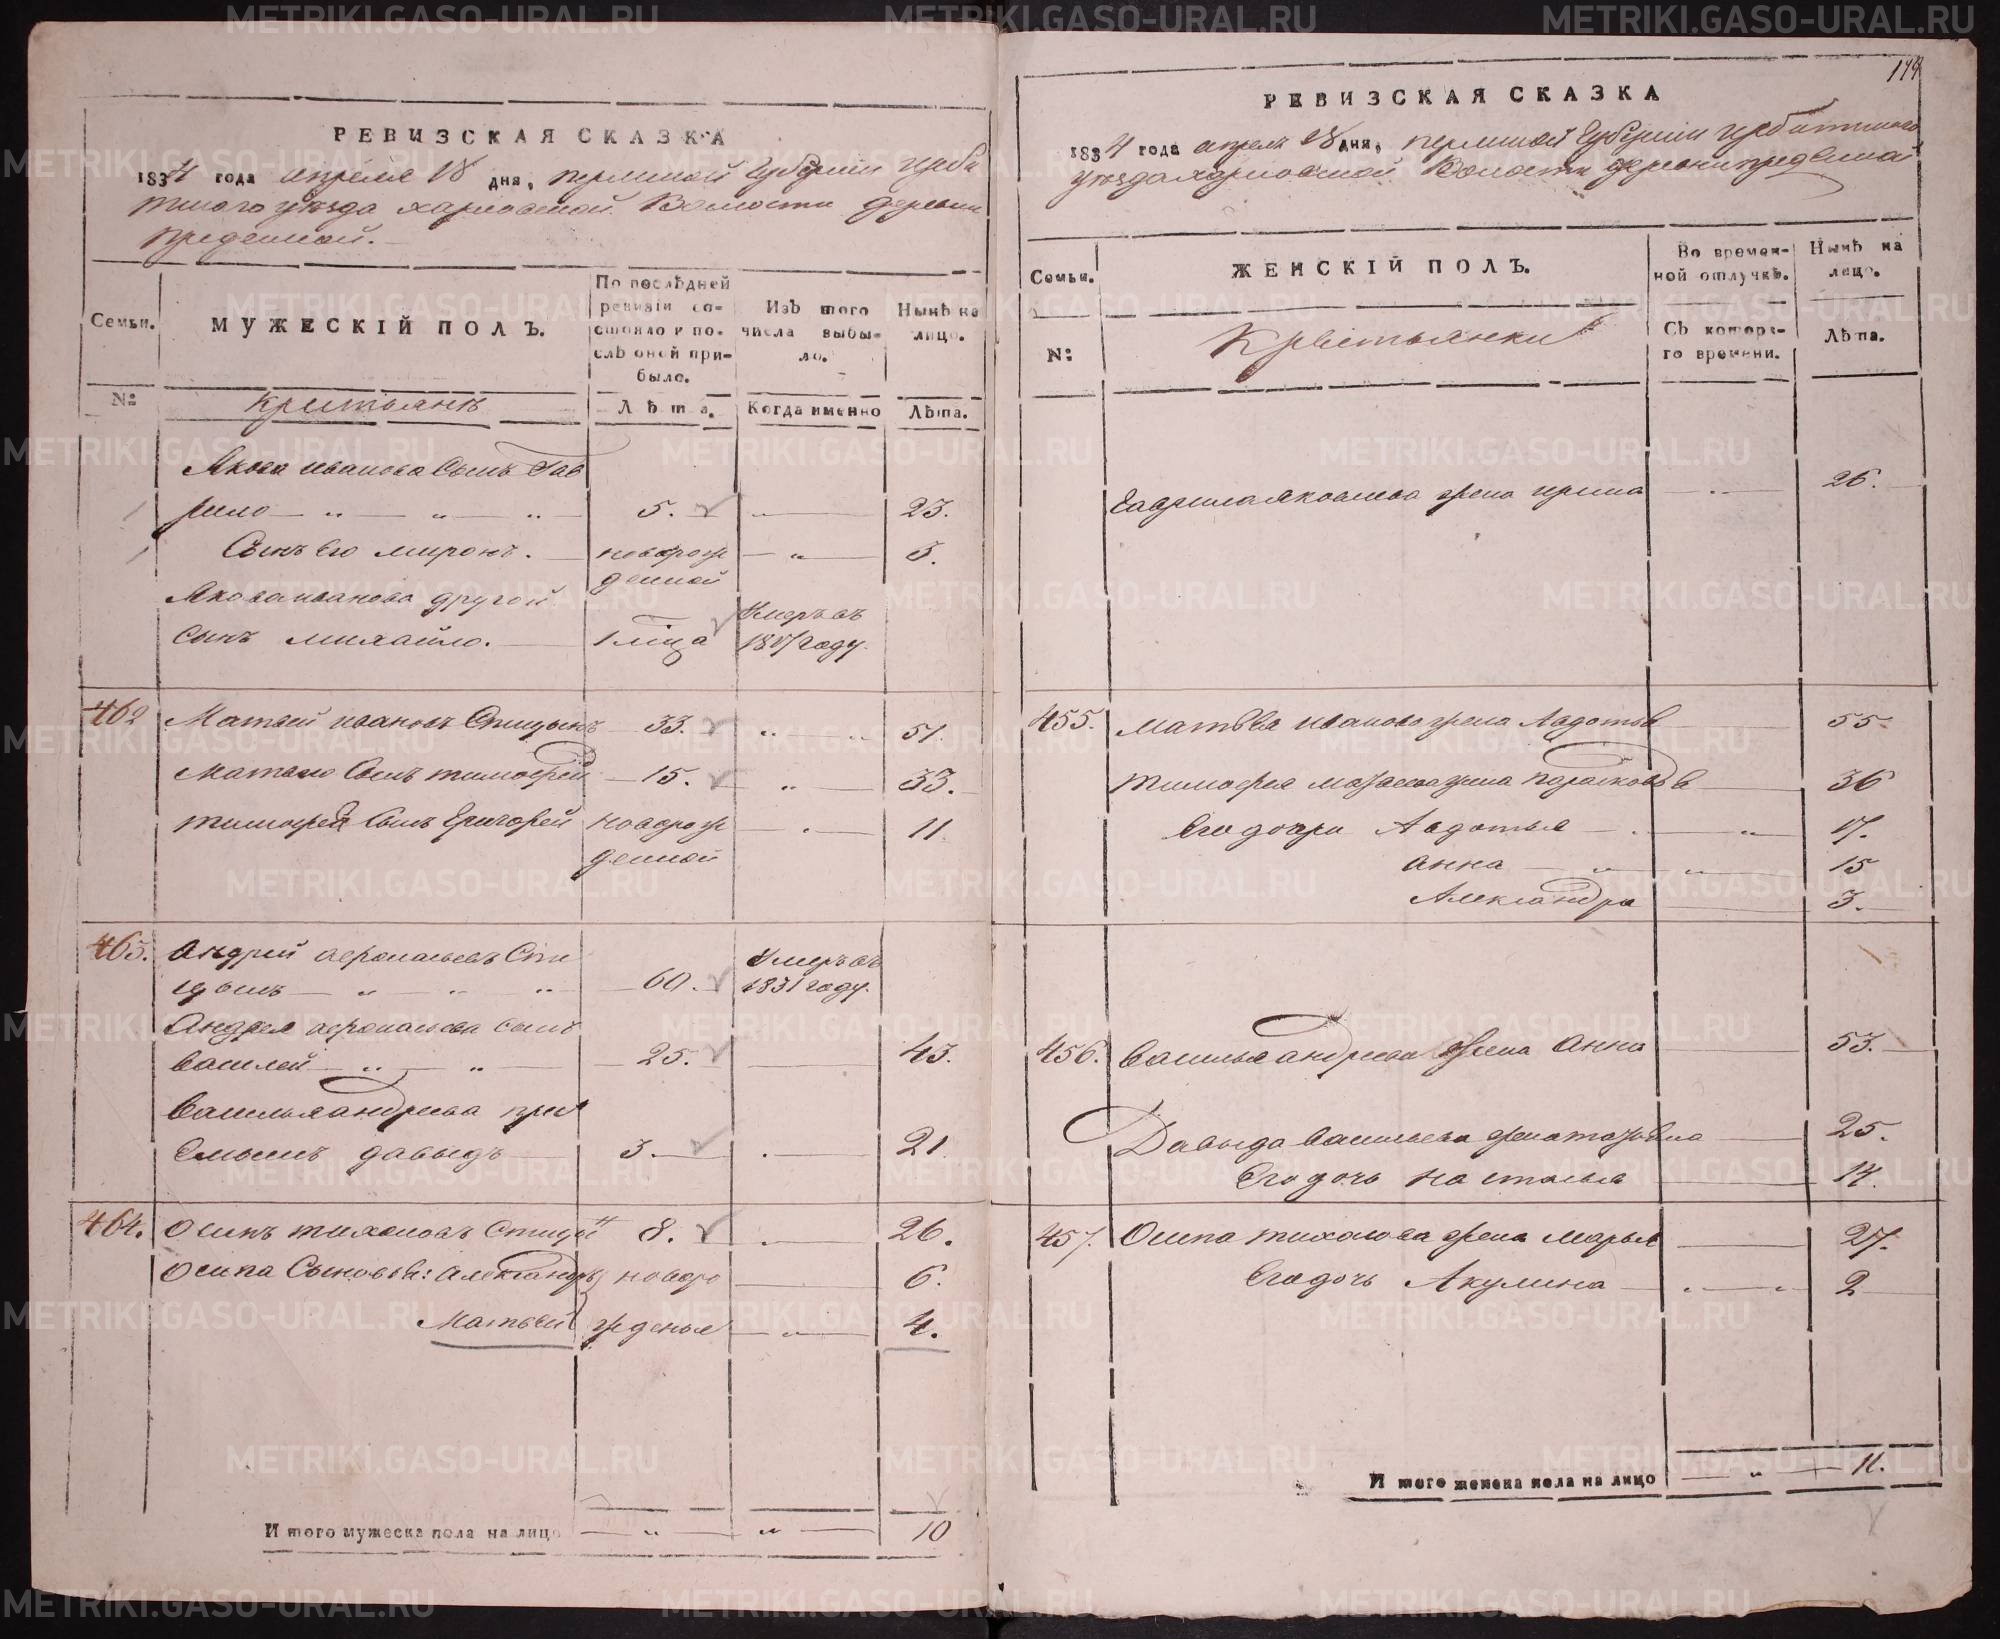 РЕВИЗСКАЯ СКАЗКА
1834 года апреля 18 дня, пермской Губернии Ирби
тского уезда харловской Волости деревни
Семьи.
МУЖЕСКІЙ ПОЛЪ.
По послѣдней ревизіи состояло и послѣ оной прибыло.
Изъ того числа выбыло.
Нынѣ на лицо.
№
крестьянъ
Лѣта.
Когда именно
Лѣта.
Якова иванова Сынъ Гав
рило 5. 23.
Сынъ Его миронъ. новорож 3.
денной
Якова иванова другой Умеръ въ
сынъ михайло. 1 мѣца году.
462 Матвей ивановъ Спицынъ 33. 51.
Матвея Сынъ тимофей 15. 33.
тимофея Сынъ Григорей новорож 11
денной
463. Андрей Спи Умеръ въ
цынъ 60. 1831 году.
Андрея сынъ
василей 25. 43.
Василья андреева при
Емышъ давыдъ 3. 21
464. Осипъ тихоновъ Спицын 8. 26.
Осипа Сыновья: Александръ новоро 6.
Матвей жденыя 4.
Итого мужеска пола на лицо 10
179
РЕВИЗСКАЯ СКАЗКА
1834 года апреля 18 дня, пермской Губернии Ирбитского
уезда харловской Волости деревни
Семьи.
ЖЕНСКІЙ ПОЛЪ.
Во временной отлучкѣ.
Нынѣ на лицо.
№:
Крестьянки
Съ котораго времени.
Лѣта.
Гаврила яковлева жена ирина 26.
455. Матвея иванова жена Авдотья 55
тимофея матвеева жена парасковья 36
Его дочери Авдотья 17.
анна 15
Александра 3.
456. Василья андреева жена Анна 53.
Давыда васильева жена татьяна 25.
Его дочь настасья 14.
457. Осипа тихонова жена Марья 27.
Его дочь Акулина 2
Итого женска пола на лицо 11.
METRIKI.GASO-URAL.RU